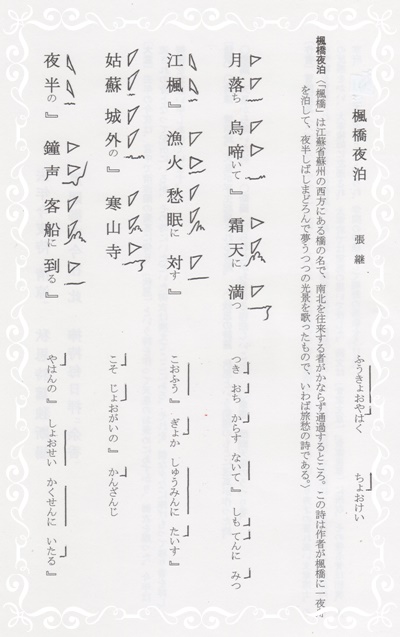 楓橋夜泊 張継 ふうきょおやはく ちょおけい
楓橋夜泊(「楓橋」は江蘇省蘇州の西方にある橋の名で、南北を往来する者がかならず通過するところ。この詩は作者が楓橋に一夜
を泊して、夜半しばしまどろんで夢うつつの光景を歌ったもので、いわば旅愁の詩である。)
月落ち 烏啼いて』 霜天に 満つ つき おち からす ないて』 しも てんに みつ
江楓』 漁火 愁眠に 対す』 こおふう』 ぎょか しゅうみんに たいす』
姑蘇 城外の』 寒山寺 こそ じょおがいの』 かんざんじ
夜半の』 鐘声 客船に 到る』 やはんの』 しょおせい かくせんに いたる』